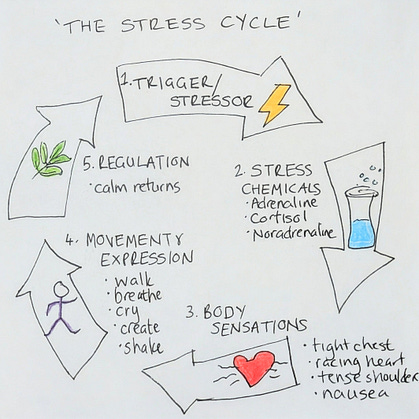 'THE STRESS CYCLE'
1. TRIGGER/
STRESSOR
2. STRESS
CHEMICALS
· Adrenaline
· Cortisol
· Noradrenaline
3. BODY
SENSATIONS
· tight chest
· racing heart
· tense shoulder
· nausea
4. MOVEMENTY
EXPRESSION
· walk
· breathe
· cry
· create
· shake
5. REGULATION
· calm returns